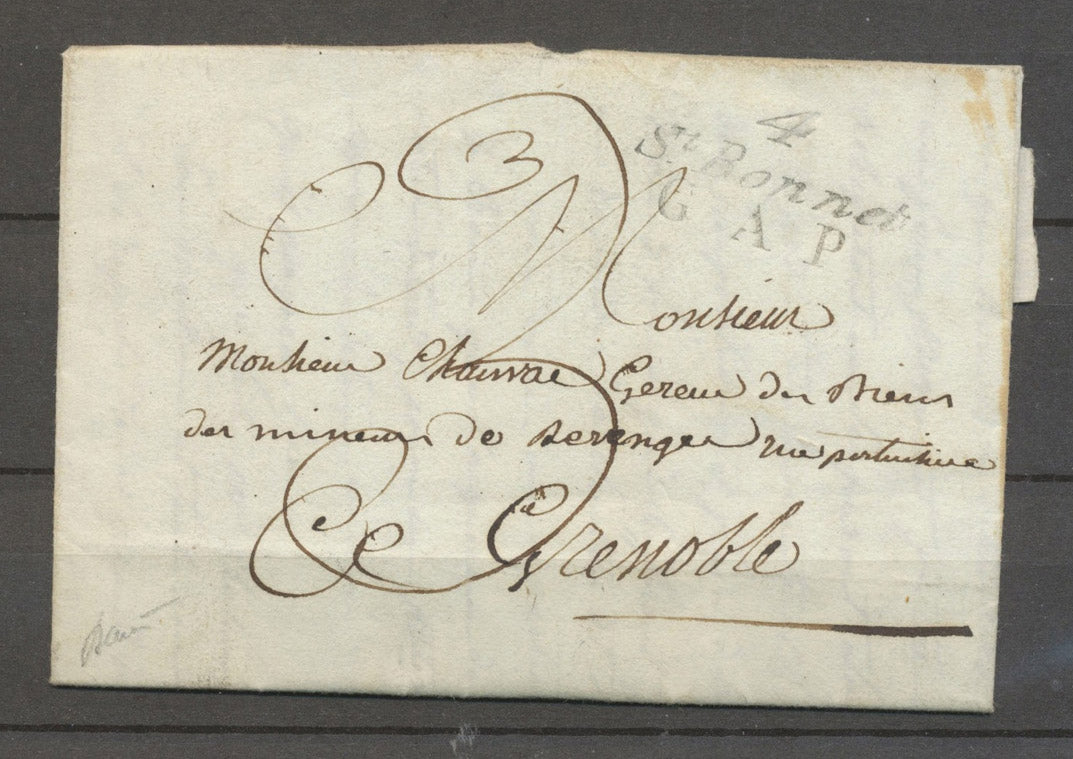 4
St Bonnet
GAP
Monsieur
Monsieur Chauvac Gereur des Biens
des mineurs de Berenger rue pertuisiere
a Grenoble